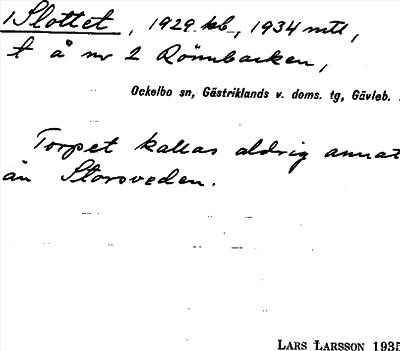 1 Slottet, 1929 kb., 1934 mtl,
t å nr 2 Rönnbacken,
Ockelbo sn, Gästriklands v. doms. tg, Gävleb.
Torpet kallas aldrig annat
än Storsveden.
LARS LARSSON 1935